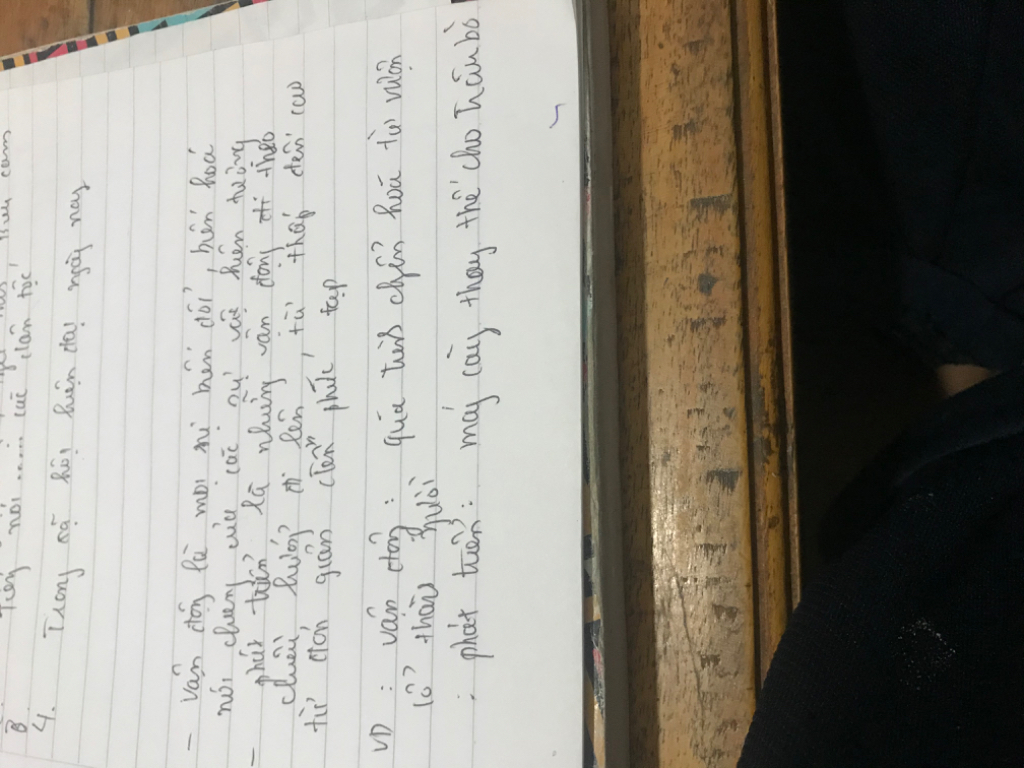 B Tiếng nói ..... các dân tộc
4. Trong xã hội hiện đại ngày nay
- vận động là mọi sự biến đổi, biến hoá
nói chung của các sự vật hiện tượng
- phát triển là những vận động đi theo
chiều hướng đi lên từ thấp đến cao
từ đơn giản đến phức tạp
VD : vận động : quá trình chuyển hoá từ vượn
cổ thành người
: phát triển : máy cày thay thế cho trâu bò